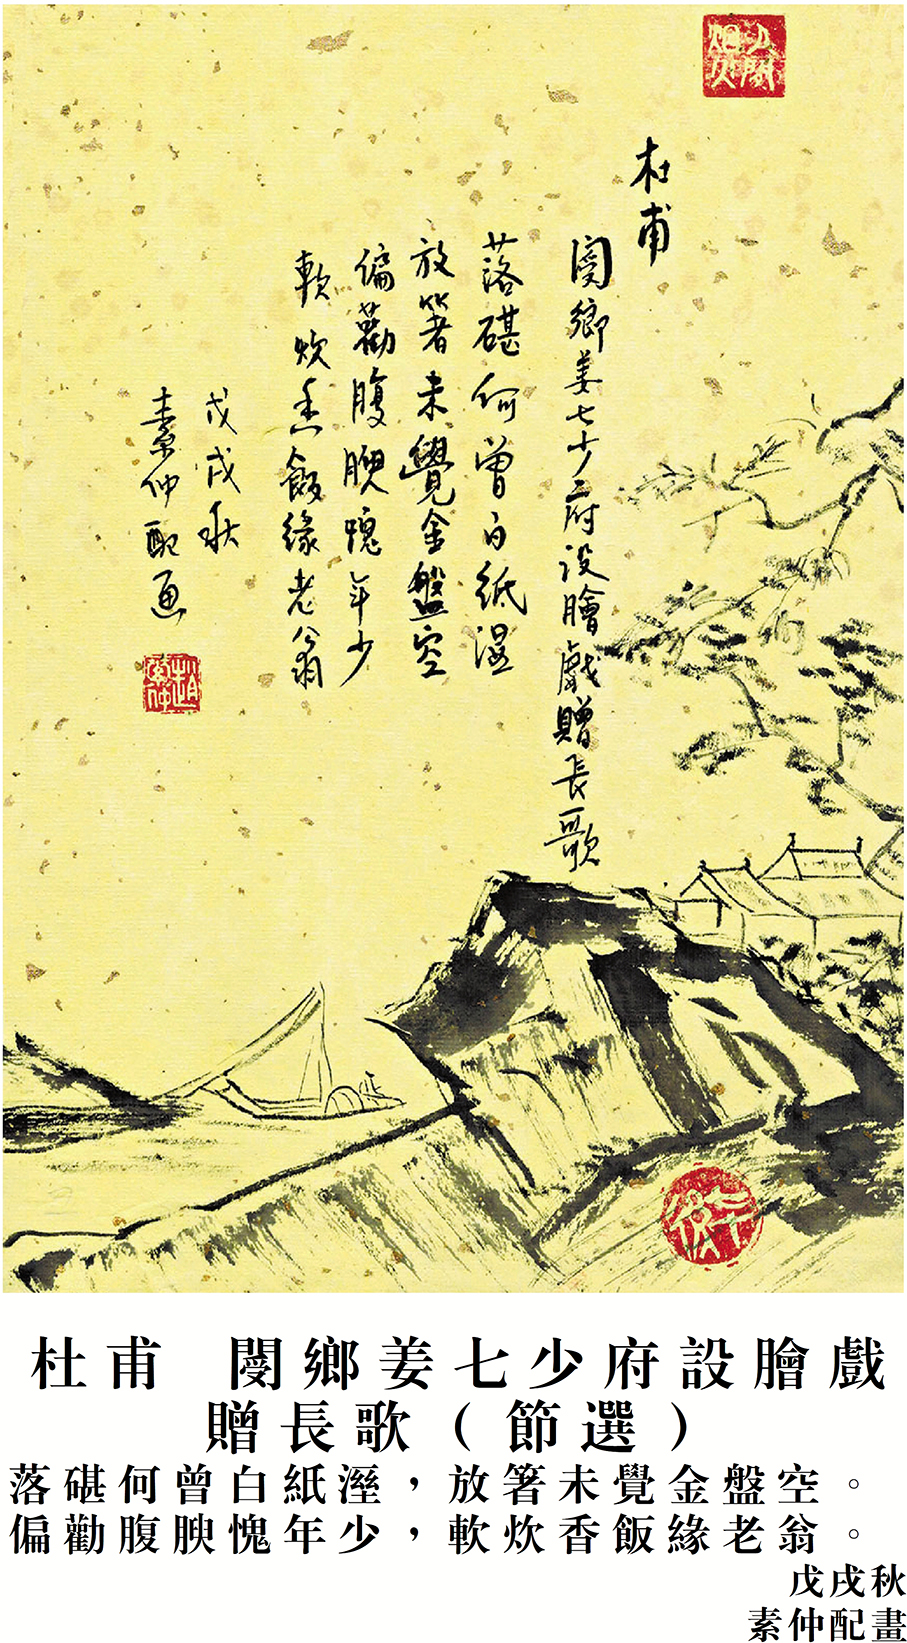 人間
烟火
杜甫
閿鄉姜七少府設膾戲贈長歌
落碪何曾白紙湿
放箸未覺金盤空
偏勸腹腴愧年少
軟炊香飯緣老翁
戊戌秋
素仲配画
趙素仲
杜甫 閿鄉姜七少府設膾戲
贈長歌（節選）
落碪何曾白紙溼，放箸未覺金盤空。
偏勸腹腴愧年少，軟炊香飯緣老翁。
戊戌秋
素仲配畫